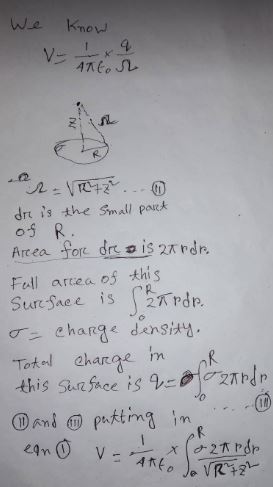 We Know
V = 1/4πε₀ × q/r
z r
R
r = √R²+z² .... (II)
dr is the small part
of R.
Area for dr is 2πrdr.
Full area of this
Surface is ∫₀ᴿ 2πrdr.
σ = charge density.
Total charge in
this Surface is q = ∫₀ᴿ σ2πrdr
.... (III)
(II) and (III) putting in
eqn (I) V = 1/4πε₀ × ∫₀ᴿ σ2πrdr/√R²+z²